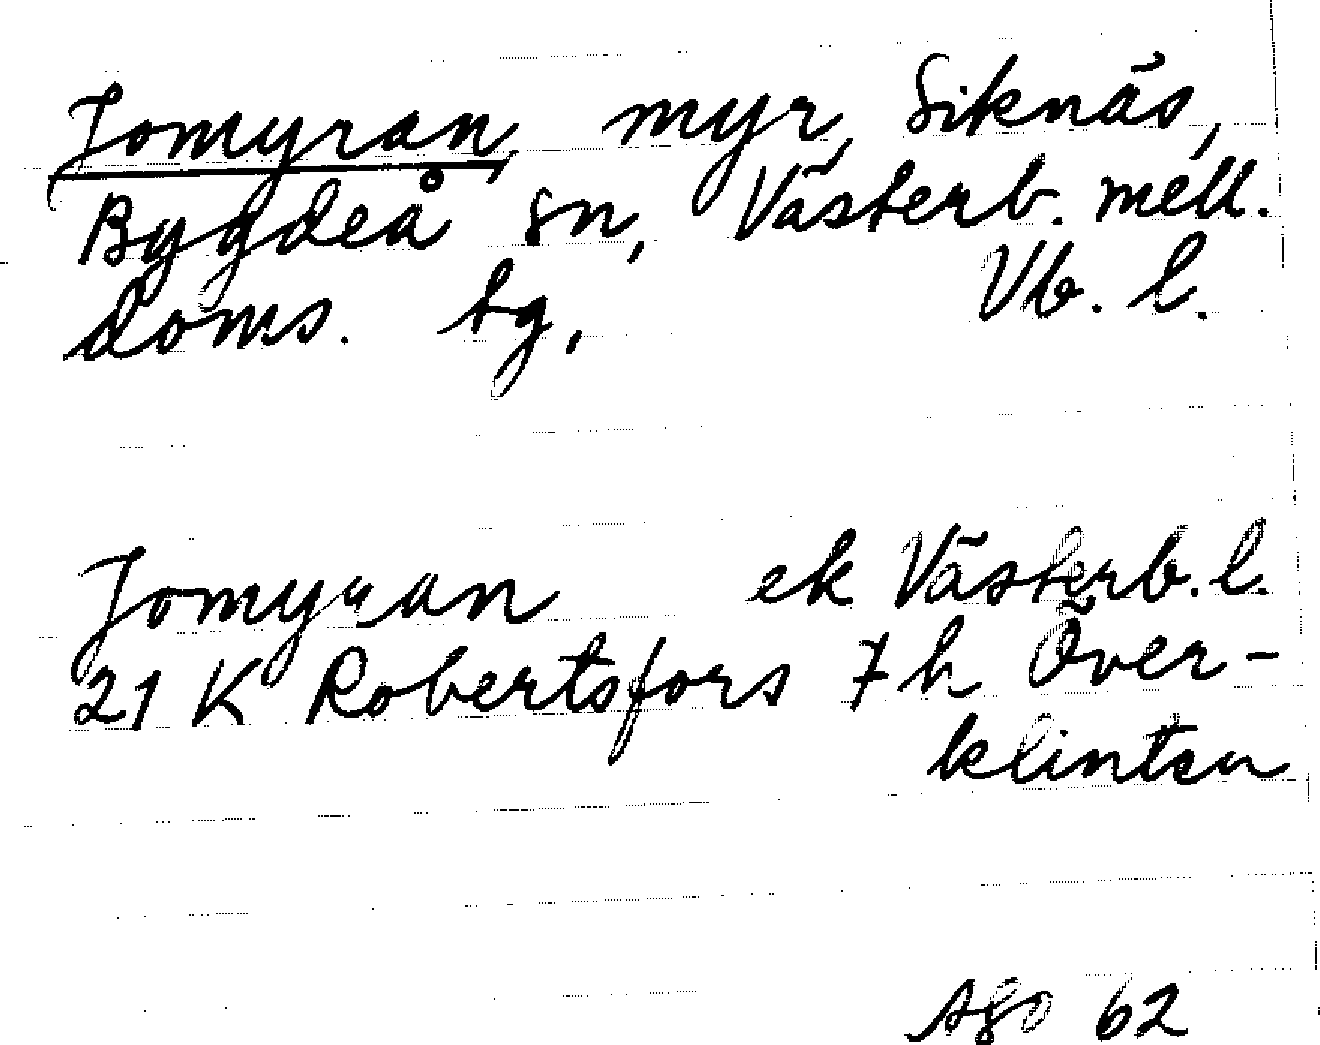 Jomyran, myr, Siknäs,
Bygdeå sn, Västerb. mell.
doms. tg, Vb. l.
Jomyran ek Västerb. l.
21 K Robertsfors 7 h Över-
klinten
Ago 62